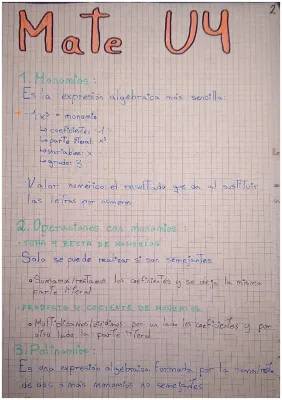 2
Mate U4
1. Monomios:
Es la expresión algebraica más sencilla.
1x³ = monomio
↳ coeficiente: 1
↳ parte literal: x³
↳ variables: x
↳ grado: 3
Valor numérico: el resultado que da al sustituir
las letras por números
2. Operaciones con monomios
· SUMA Y RESTA DE MONOMIOS
Solo se puede realizar si son semejantes
• Sumamos/restamos los coeficientes y se deja la misma
parte literal
· PRODUCTO Y COCIENTE DE MONOMIOS
• Multiplicamos/dividimos por un lado los coeficientes y por
otro lado la parte literal
3. Polinomios:
Es una expresión algebraica formada por la
de dos o más monomios no semejantes